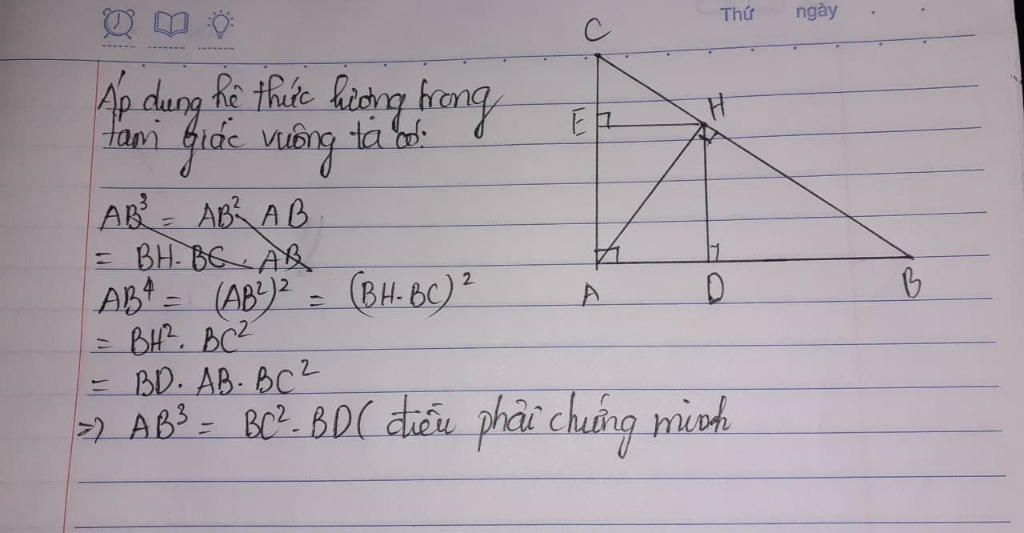 Thứ ngày
Áp dụng hệ thức lượng trong
tam giác vuông ta có:
AB³ = AB². AB
= BH. BC. AB
AB⁴ = (AB²)² = (BH.BC)²
= BH². BC²
= BD. AB. BC²
=> AB³ = BC². BD ( điều phải chứng minh
C
E
H
A
D
B